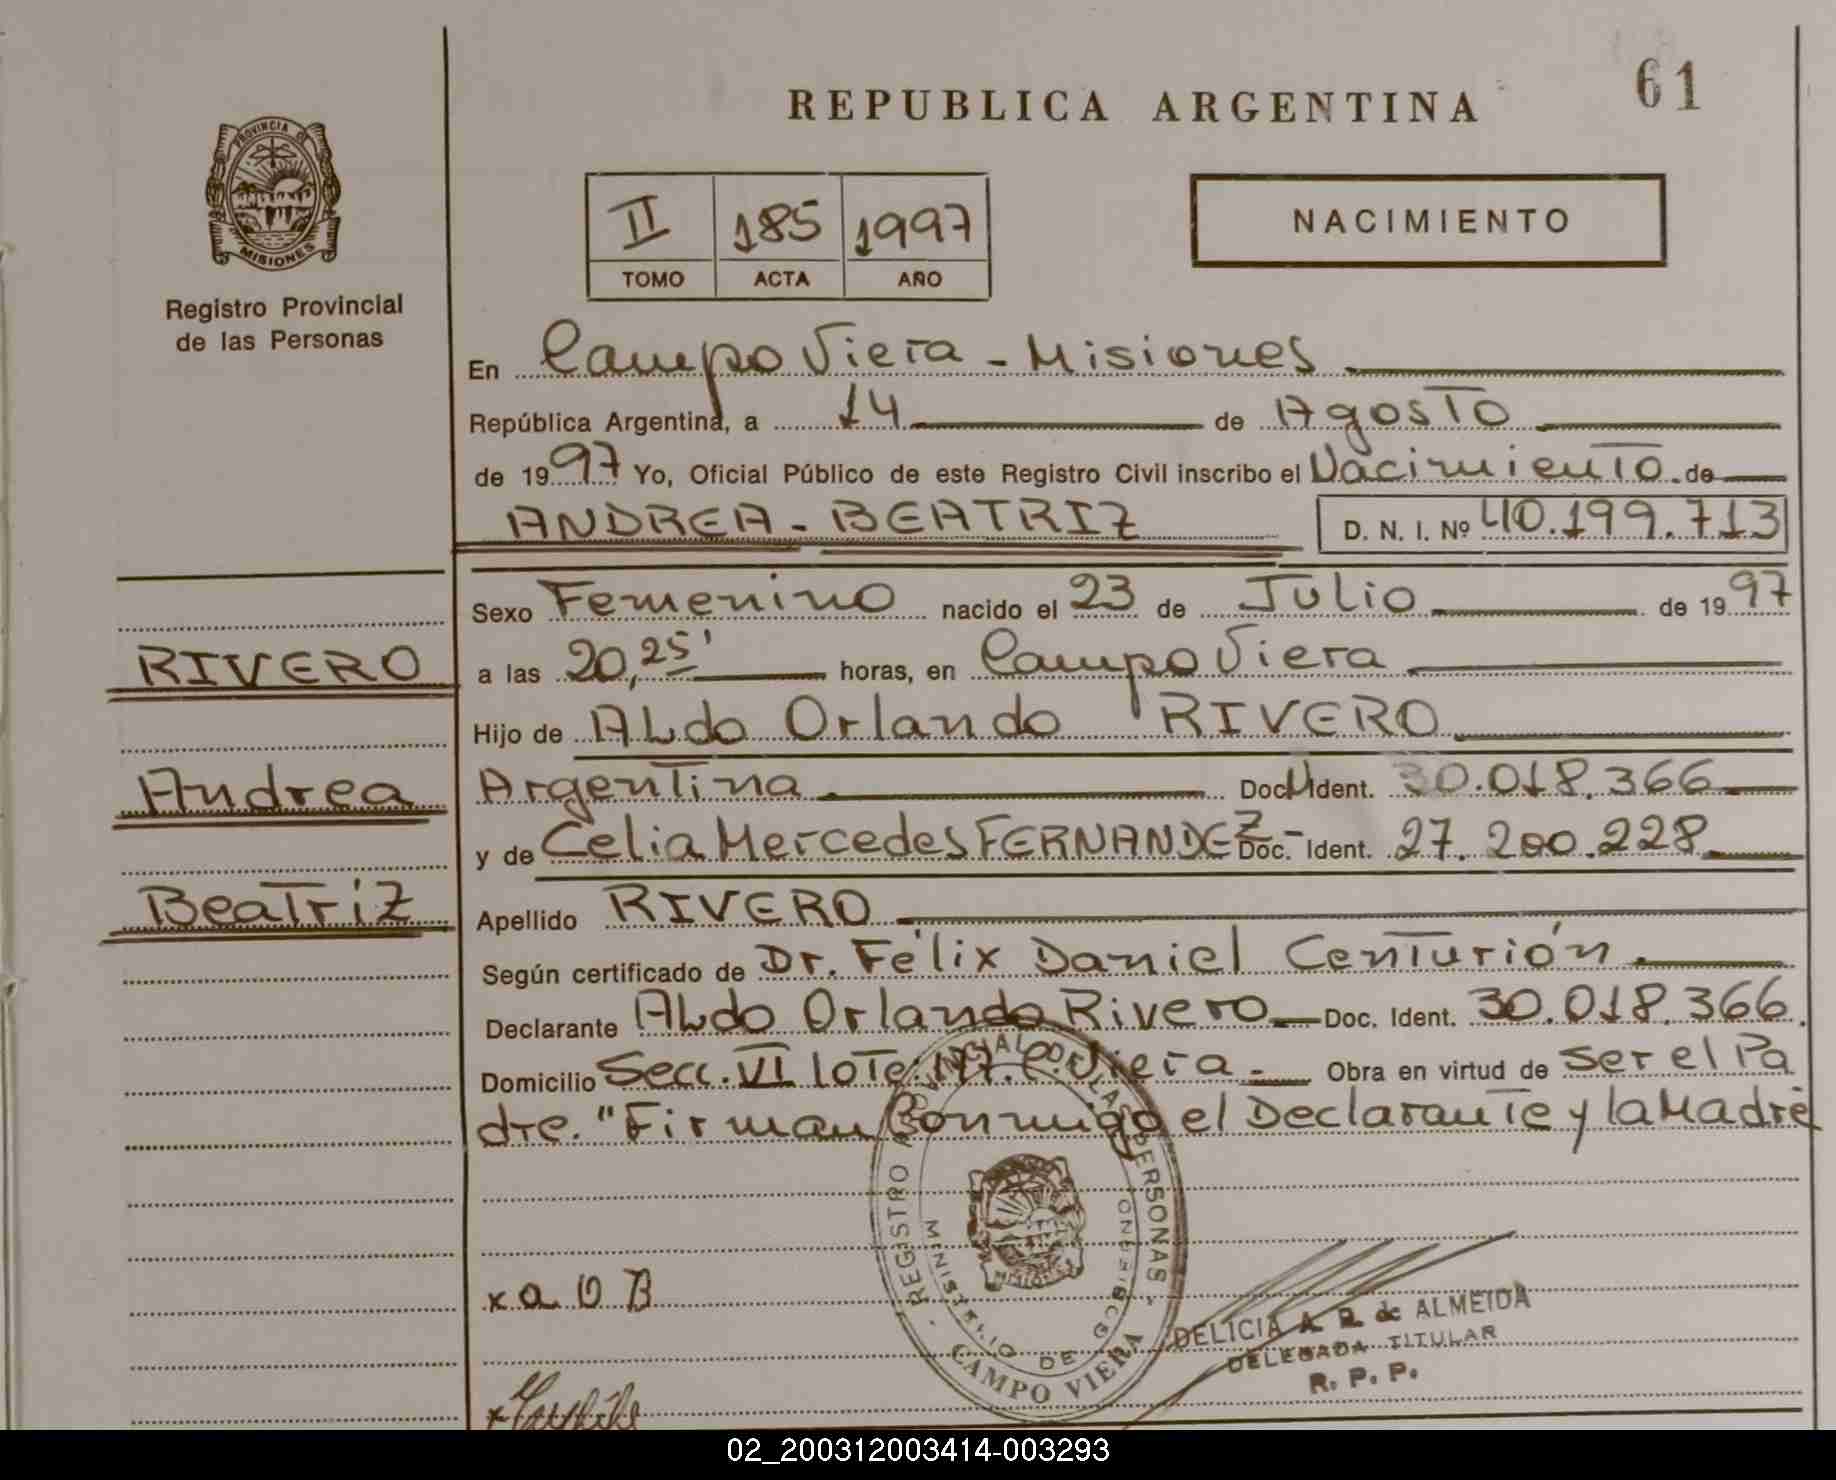 61
REPUBLICA ARGENTINA
PROVINCIA DE
MISIONES
Registro Provincial
de las Personas
II 185 1997
TOMO ACTA AÑO
NACIMIENTO
En Campo Viera - Misiones
República Argentina, a 14 de Agosto
de 1997 Yo, Oficial Público de este Registro Civil inscribo el Nacimiento de
ANDREA - BEATRIZ D. N. I. Nº 40.199.713
Sexo Femenino nacido el 23 de Julio de 1997
RIVERO
a las 20,25' horas, en Campo Viera
Hijo de ALdo Orlando RIVERO
Andrea
Argentina Doc. Ident. 30.018.366
y de Celia Mercedes FERNANDEZ - Doc. Ident. 27.200.228
Beatriz
Apellido RIVERO
Según certificado de Dr. Félix Daniel Centurión.
Declarante ALdo Orlando Rivero Doc. Ident. 30.018.366.
Domicilio Secc. VI lote C. Viera. Obra en virtud de ser el Pa
dre. "Firman Conmigo el Declarante y la Madre
REGISTRO PROVINCIAL DE LAS PERSONAS - CAMPO VIERA
MINISTERIO DE GOBIERNO
MISIONES
x a O B
DELICIA A. R. de ALMEIDA
DELEGADA TITULAR
R. P. P.
02_200312003414-003293